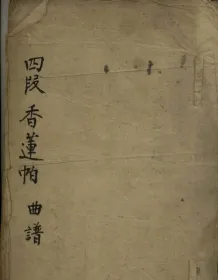 四段香蓮帕曲譜